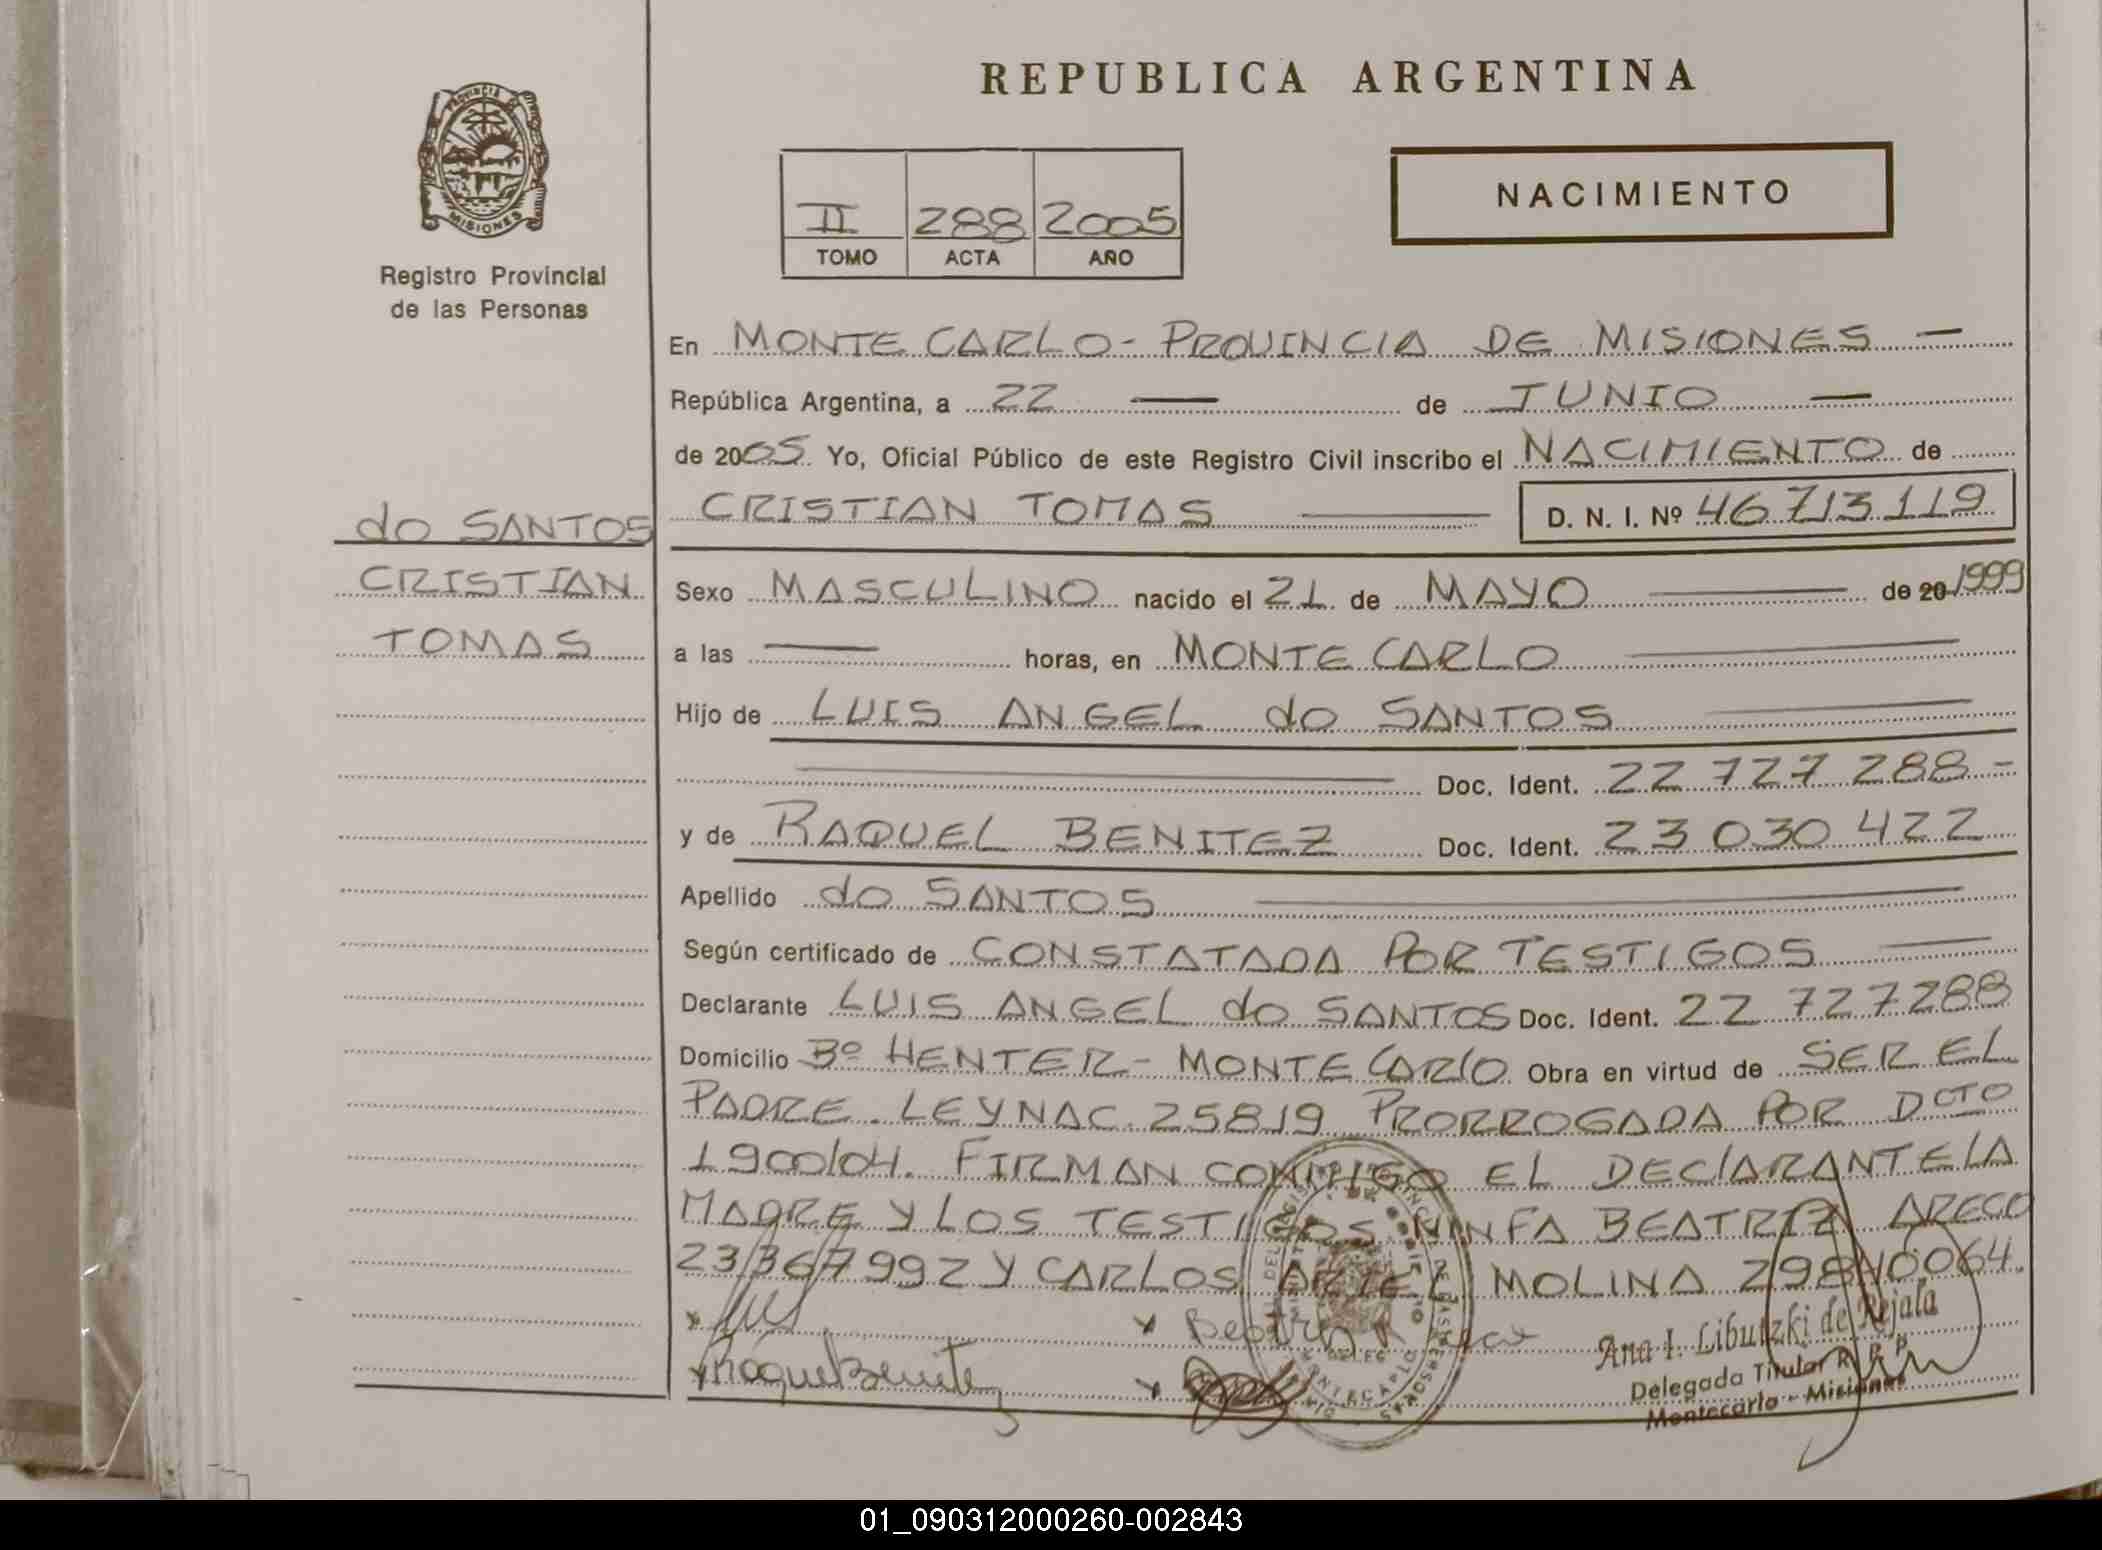 REPUBLICA ARGENTINA
PROVINCIA DE
MISIONES
Registro Provincial
de las Personas
NACIMIENTO
II 288 2005
TOMO ACTA AÑO
En MONTE CARLO - PROVINCIA DE MISIONES —
República Argentina, a 22 — de JUNIO —
de 2005 Yo, Oficial Público de este Registro Civil inscribo el NACIMIENTO de
do SANTOS
CRISTIAN
TOMAS
CRISTIAN TOMAS — D. N. I. Nº 46 713 119
Sexo MASCULINO nacido el 21 de MAYO — de 20 1999
a las — horas, en MONTE CARLO —
Hijo de LUIS ANGEL do SANTOS —
— Doc. Ident. 22 727 288 -
y de RAQUEL BENITEZ Doc. Ident. 23 030 422
Apellido do SANTOS —
Según certificado de CONSTATADA POR TESTIGOS —
Declarante LUIS ANGEL do SANTOS Doc. Ident. 22 727288
Domicilio Bº HENTER - MONTE CARlO Obra en virtud de SER EL
PADRE. LEY NAC. 25819 PRORROGADA POR DCTO
1900/04. FIRMAN CONMIGO EL DEClARANTE lA
MADRE Y LOS TESTIGOS NINFA BEATRIZ ARECO
23367992 Y CARLOS ARIEL MOLINA 29840064.
Raquel Benitez
Ana I. Libutzki de Rejala
Delegada Titular R. P. P.
Montecarlo - Misiones
01_090312000260-002843